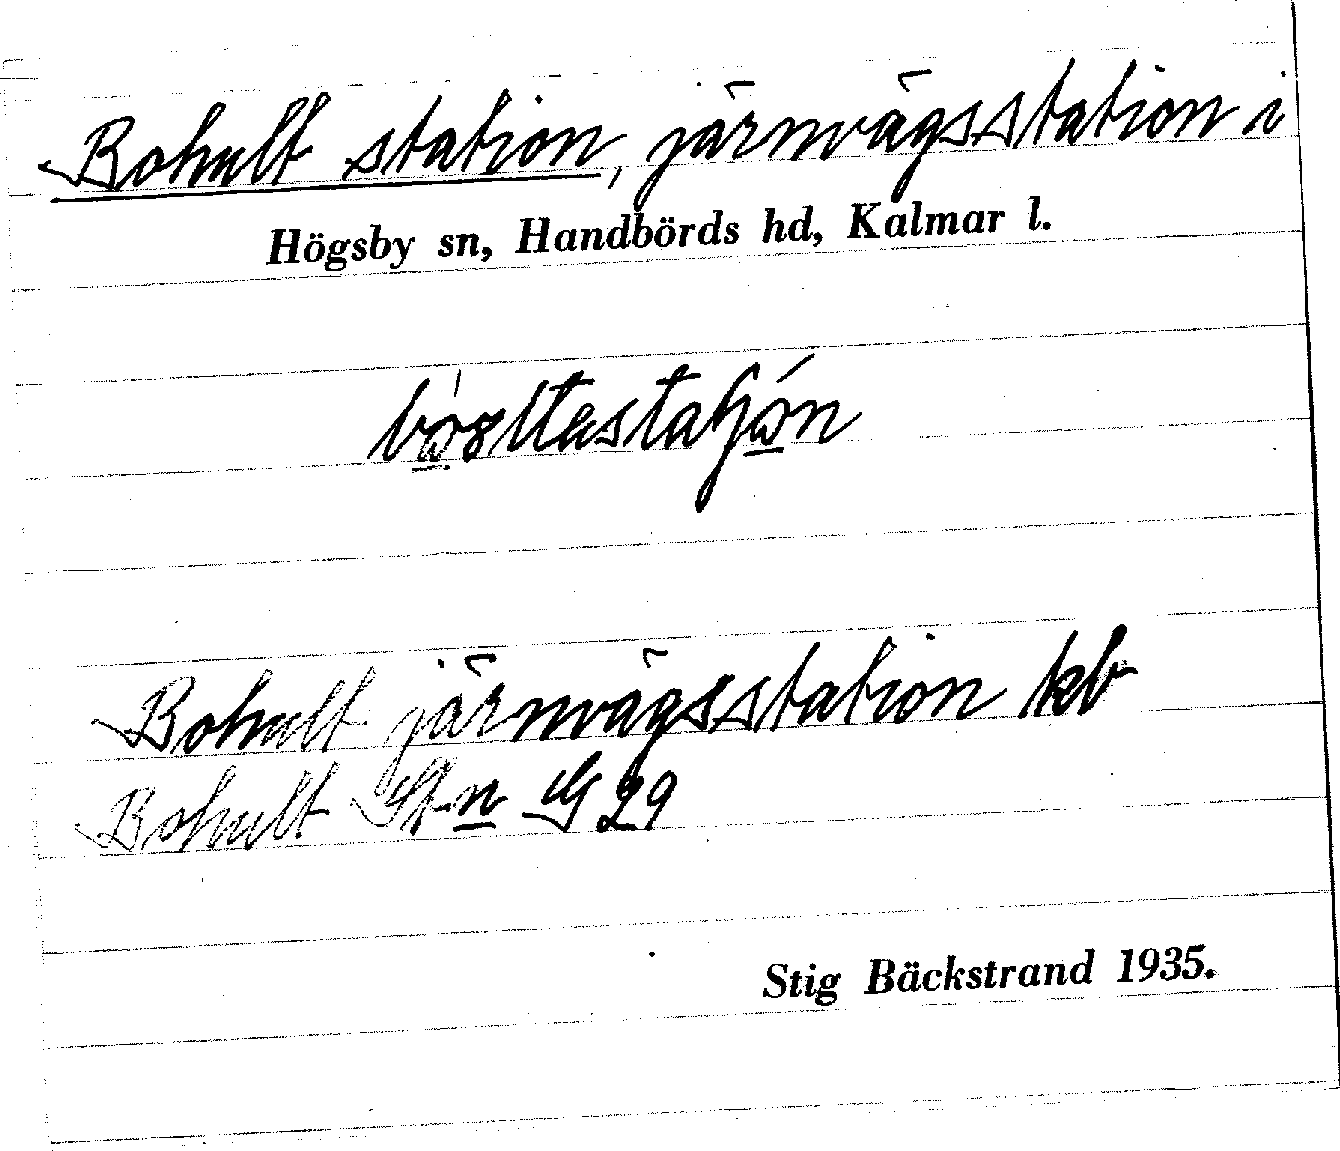 Bohult station, järnvägsstation i
Högsby sn, Handbörds hd, Kalmar l.
Bohult järnvägsstation kb
Bohult St-n G 29
Stig Bäckstrand 1935.